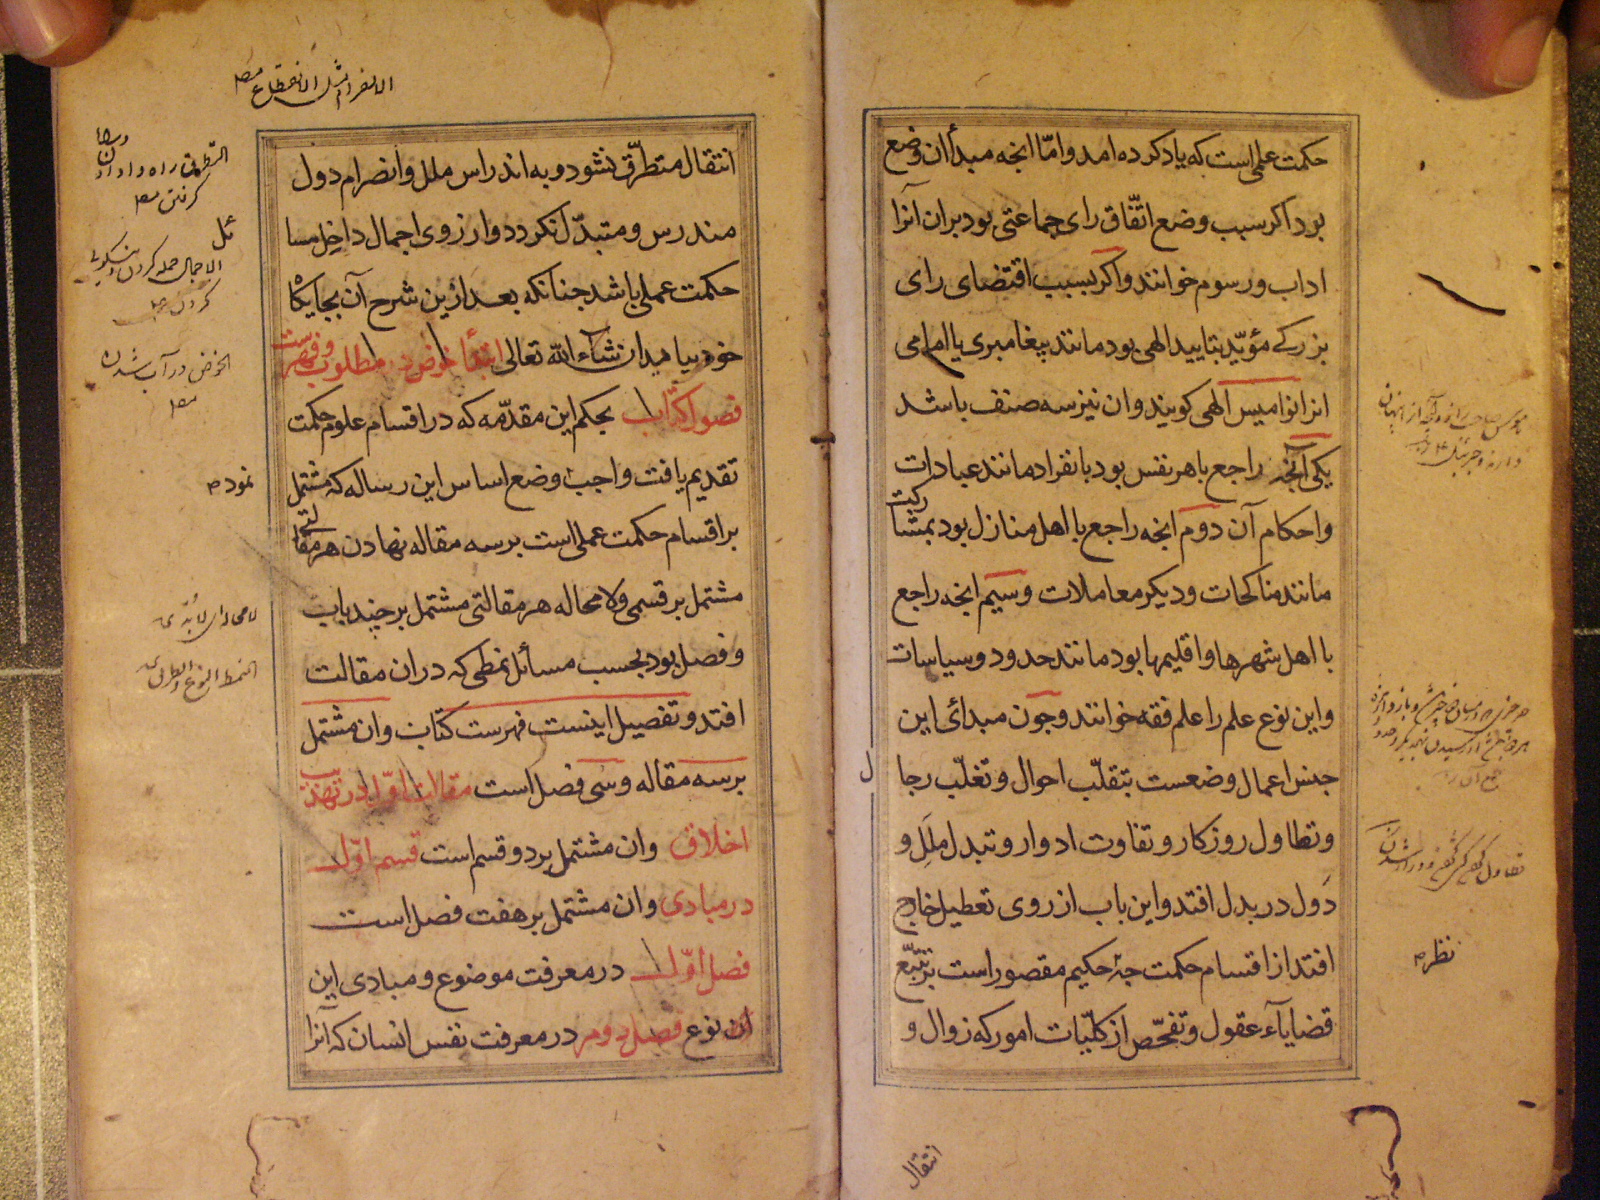 حکمت عملی است که یاد کرده امد و امّا انچه مبدأ ان وضع
بود اکر سبب وضع اتّفاق رای جماعتی بود بران آنرا
اداب و رسوم خوانند و اکر بسبب اقتضای رای
بزرکے مؤیّد بتایید الهی بود مانند پیغامبری یا امامی
انرا نوامیس الهی کویند و ان نیز سه صنف باشد
یکی آنچه راجع با هر نفس بود بانفراد مانند عبادات
و احکام آن دوم انچه راجع با اهل منازل بود بمشارکت
مانند مناکحات و دیکر معاملات و سیم انچه راجع
با اهل شهرها و اقلیمها بود مانند حدود و سیاسات
و این نوع علم را علم فقه خوانند و چون مبدائ این
جنس اعمال وضعست بتقلّب احوال و تغلّب رجال
و تطاول روزکار و تفاوت ادوار و تبدل ملل و
دول در بدل افتد و این باب از روی تعطیل خارج
افتد از اقسام حکمت چه حکیم مقصور است بر تتبّع
قضایاء عقول و تفحّص از کلیّات امور که زوال و
نظر
انتقال
الانصرام الانقطاع
انتقال متطرّق نشود و به اندراس ملل و انصرام دول
مندرس و متبدّل نکردد و از روی اجمال داخل مسا
حکمت عملی باشد چنانکه بعد ازین شرح آن بجایکاه
خود بیاید ان شآء الله تعالی ابتدأ خوض در مطلوب و فهرست
فصول کتاب بحکم این مقدّمه که در اقسام علوم حکمت
تقدیم یافت واجب وضع اساس این رساله که مشتمل
بر اقسام حکمت عملی است بر سه مقاله نهادن هر مقالتی
مشتمل بر قسمی و لا محاله هر مقالتی مشتمل بر چند باب
و فصل بود بحسب مسائل نمطی که دران مقالت
افتد و تفصیل اینست فهرست کتاب وان مشتمل
بر سه مقاله و سی فصل است مقالت اوّل در تهذیب
اخلاق وان مشتمل بر دو قسم است قسم اوّل
در مبادی وان مشتمل بر هفت فصل است
فصل اوّل در معرفت موضوع و مبادی این
نوع فصل دوم در معرفت نفس انسان که آنرا
الخوض در آب شدن
نمود